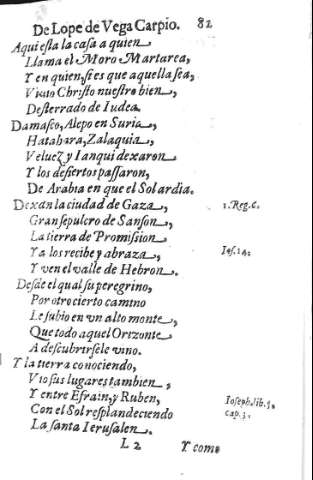 De Lope de Vega Carpio. 82
Aqui esta la casa a quien
Llama el Moro Martarea,
Y en quien, si es que aquella sea,
Viuio Christo nuestro bien,
Desterrado de Iudea.
Damasco, Alepo en Suria,
Hatahara, Zalaquia,
Veluez, y Ianqui dexaron
Y los desiertos passaron,
De Arabia en que el Sol ardia.
Dexan la ciudad de Gaza, 1. Reg. 6.
Gran sepulcro de Sanson,
La tierra de Promission
Ya los recibe y abraza, Ios. 14.
Y ven el valle de Hebron.
Desde el qual su peregrino,
Por otro cierto camino
Le subio en vn alto monte,
Que todo aquel Orizonte
A descubrirsele vino.
Y la tierra conociendo,
Vio sus lugares tambien,
Y entre Efrain, y Ruben, Ioseph. lib. 5.
Con el Sol resplandeciendo cap. 3.
La santa Ierusalen.
L 2 Y como